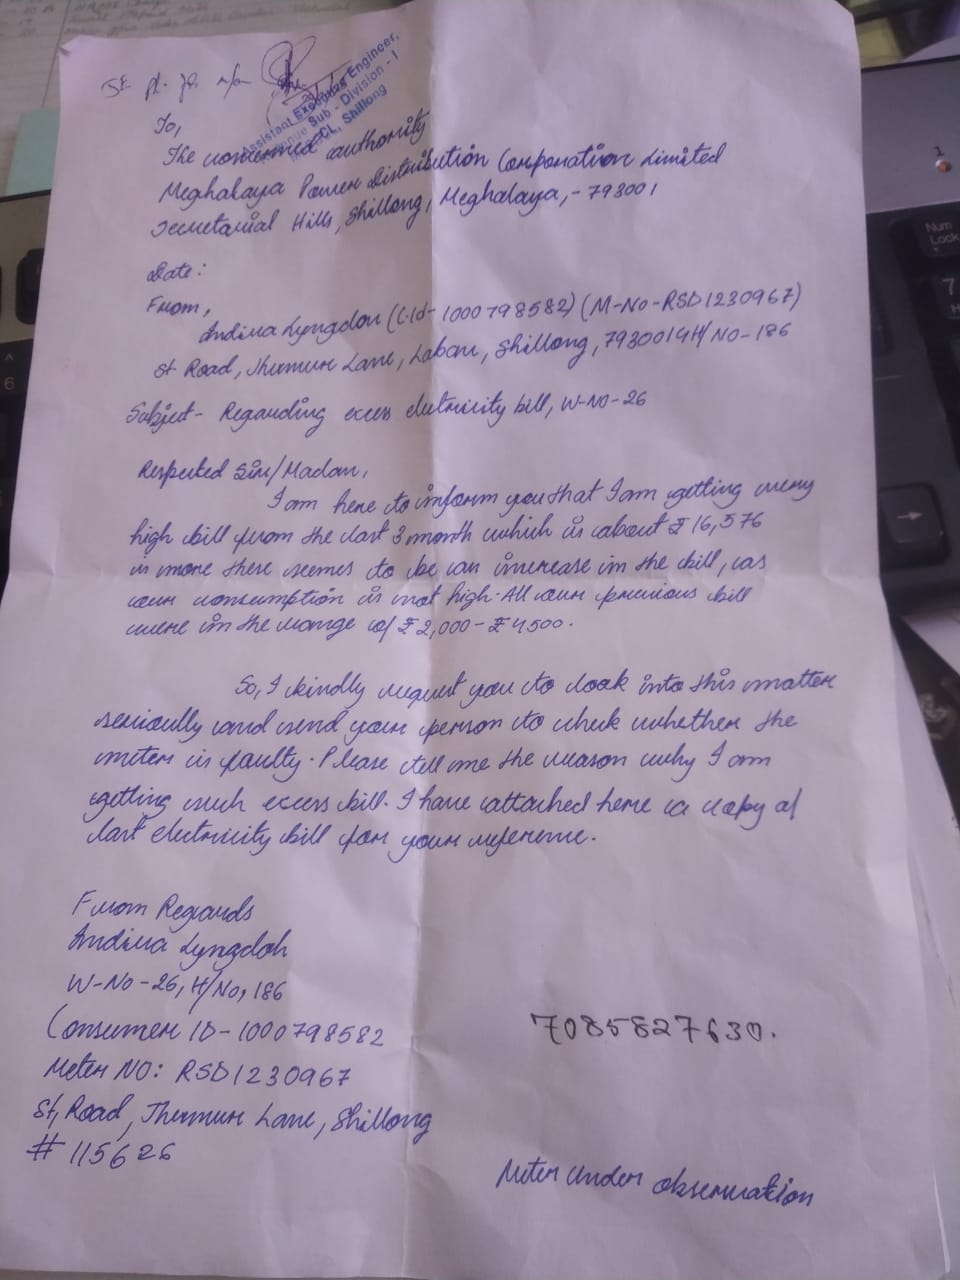 To,
The concerned authority
Assistant Executive Engineer,
Revenue Sub - Division - I
Shillong
Meghalaya Power Distribution Corporation Limited
Secretariat Hills, Shillong, Meghalaya, - 793001
Date:
From,
Andira Lyngdoh (C.Id- 1000798582) (M-No-RSD1230967)
St Road, Jhumur Lane, Laban, Shillong, 793001 4H/NO-186
Subject- Regarding excess electricity bill, W-NO-26
Respected Sir/Madam,
I am here to inform you that I am getting very
high bill from the last 3 month which is about ₹ 16,576
is more there seems to be an increase in the bill, as
our consumption is not high. All our previous bill
were in the range of ₹ 2,000 - ₹ 4500.
So, I kindly request you to look into this matter
seriously and send your person to check whether the
meter is faulty. Please tell me the reason why I am
getting such excess bill. I have attached here a copy of
last electricity bill for your reference.
From Regards
Andira Lyngdoh
W-No-26, H/No, 186
Consumer ID- 1000798582
7085827630.
Meter NO: RSD1230967
St, Road, Jhumur Lane, Shillong
# 115626
Meter Under observation